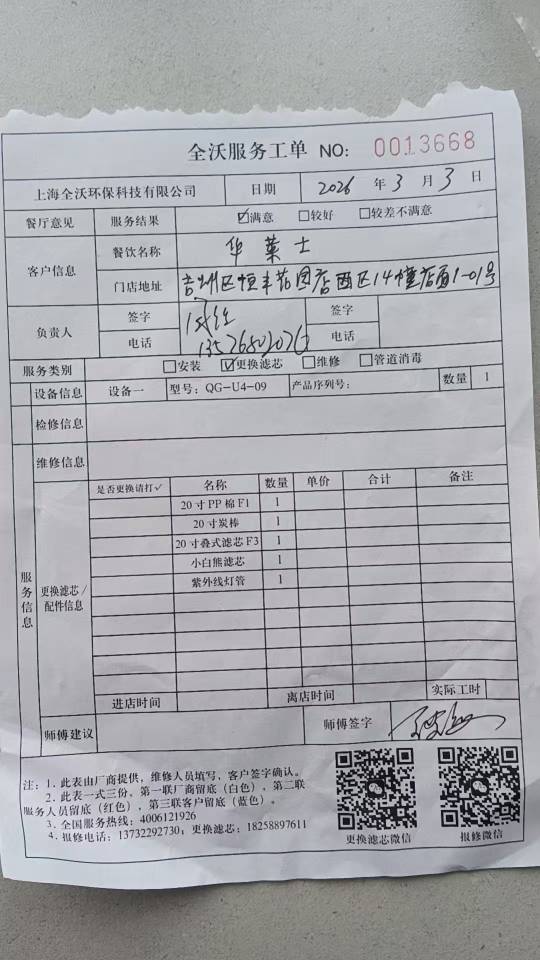 全沃服务工单 NO: 0013668
上海全沃环保科技有限公司 日期 2026 年 3 月 3 日
餐厅意见 服务结果 ☑满意 □较好 □较差不满意
客户信息 餐饮名称 华莱士
门店地址 吉州区恒丰花园店西区14幢店面1-01号
负责人 签字 签字
电话 电话
服务类别 □安装 ☑更换滤芯 □维修 □管道消毒
设备信息 设备一 型号: QG-U4-09 产品序列号: 数量 1
检修信息
维修信息
服务信息 更换滤芯/配件信息 是否更换请打✓ 名称 数量 单价 合计 备注
20寸PP棉F1 1
20寸炭棒 1
20寸叠式滤芯F3 1
小白熊滤芯 1
紫外线灯管 1
进店时间 离店时间 实际工时
师傅建议 师傅签字
注: 1. 此表由厂商提供, 维修人员填写, 客户签字确认。
2. 此表一式三份, 第一联厂商留底(白色), 第二联
服务人员留底(红色), 第三联客户留底(蓝色)。
3. 全国服务热线: 4006121926
4. 报修电话: 13732292730; 更换滤芯: 18258897611
更换滤芯微信 报修微信